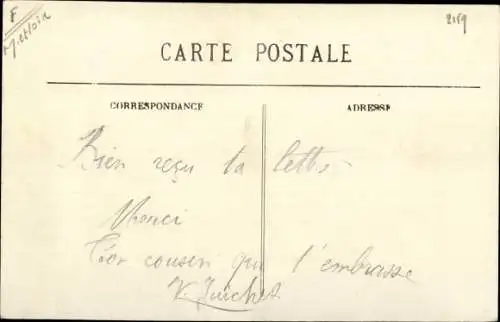 F
M et Loir
2159
CARTE POSTALE
CORRESPONDANCE
ADRESSE
Bien reçu ta lettre
Merci
Ton cousin qui t'embrasse